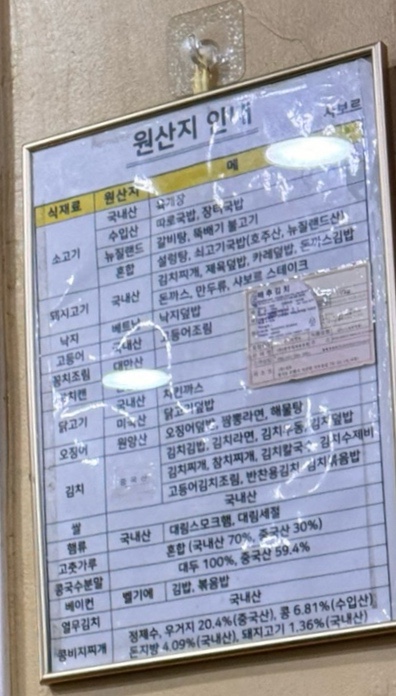 원산지 안내
사보르
식재료 원산지 메
소고기 국내산 육개장
수입산 따로국밥, 장터국밥
뉴질랜드 갈비탕, 뚝배기 불고기
혼합 설렁탕, 쇠고기국밥(호주산, 뉴질랜드산)
돼지고기 국내산 김치찌개, 제육덮밥, 카레덮밥, 돈까스김밥
돈까스, 만두류, 사보르 스테이크
낙지 베트남 낙지덮밥
고등어 국내산 고등어조림
꽁치조림 대만산
닭고기 국내산 치킨까스
미국산 닭고기덮밥
오징어 원양산 오징어덮밥, 짬뽕라면, 해물탕
김치 중국산 김치김밥, 김치라면, 김치우동, 김치덮밥
김치찌개, 참치찌개, 김치칼국수, 김치수제비
고등어김치조림, 반찬용김치, 김치볶음밥
배추김치
쌀 국내산
햄류 국내산 대림스모크햄, 대림세절
고춧가루 혼합 (국내산 70%, 중국산 30%)
콩국수분말 대두 100%, 중국산 59.4%
베이컨 벨기에 김밥, 볶음밥
열무김치 국내산
콩비지찌개 정제수, 우거지 20.4%(중국산), 콩 6.81%(수입산)
돈지방 4.09%(국내산), 돼지고기 1.36%(국내산)